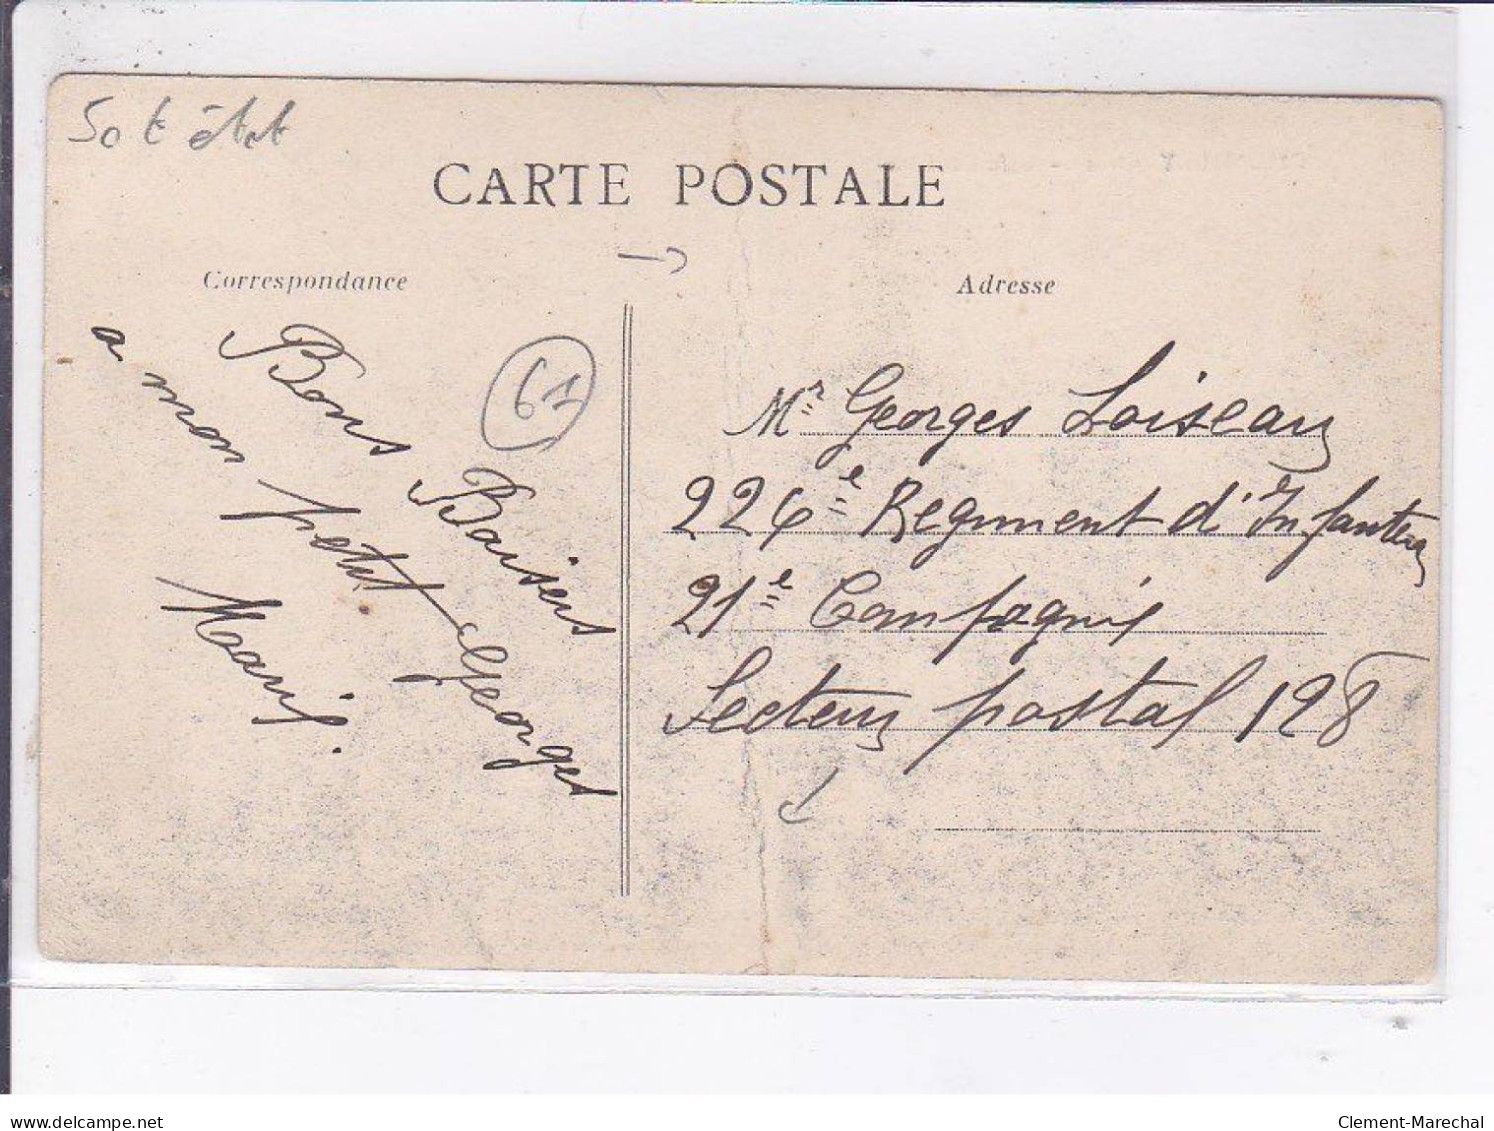 50 € état
CARTE POSTALE
Correspondance
Adresse
61
Bons Baisers
a mon petit Georges
Marie.
Mr Georges Loiseau
226e Regiment d'Infanterie
21e Compagnie
Secteur postal 128
delcampe.net
Clement-Marechal